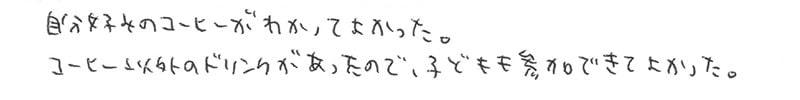 自分好みのコーヒーがわかってよかった。
コーヒー以外のドリンクがあったので、子どもも参加できてよかった。